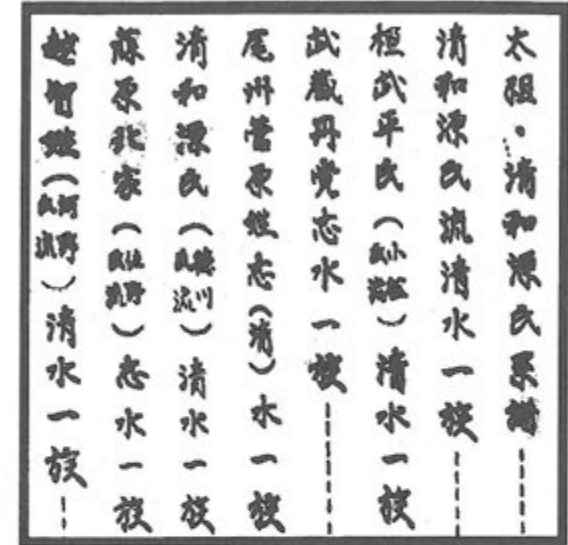 太祖・清和源氏系譜
清和源氏流清水一族
桓武平氏（小松氏流）清水一族
武蔵丹党志水一族
尾州菅原姓志（清）水一族
清和源氏（徳川氏流）清水一族
藤原北家（佐野氏流）志水一族
越智姓（河野氏流）清水一族